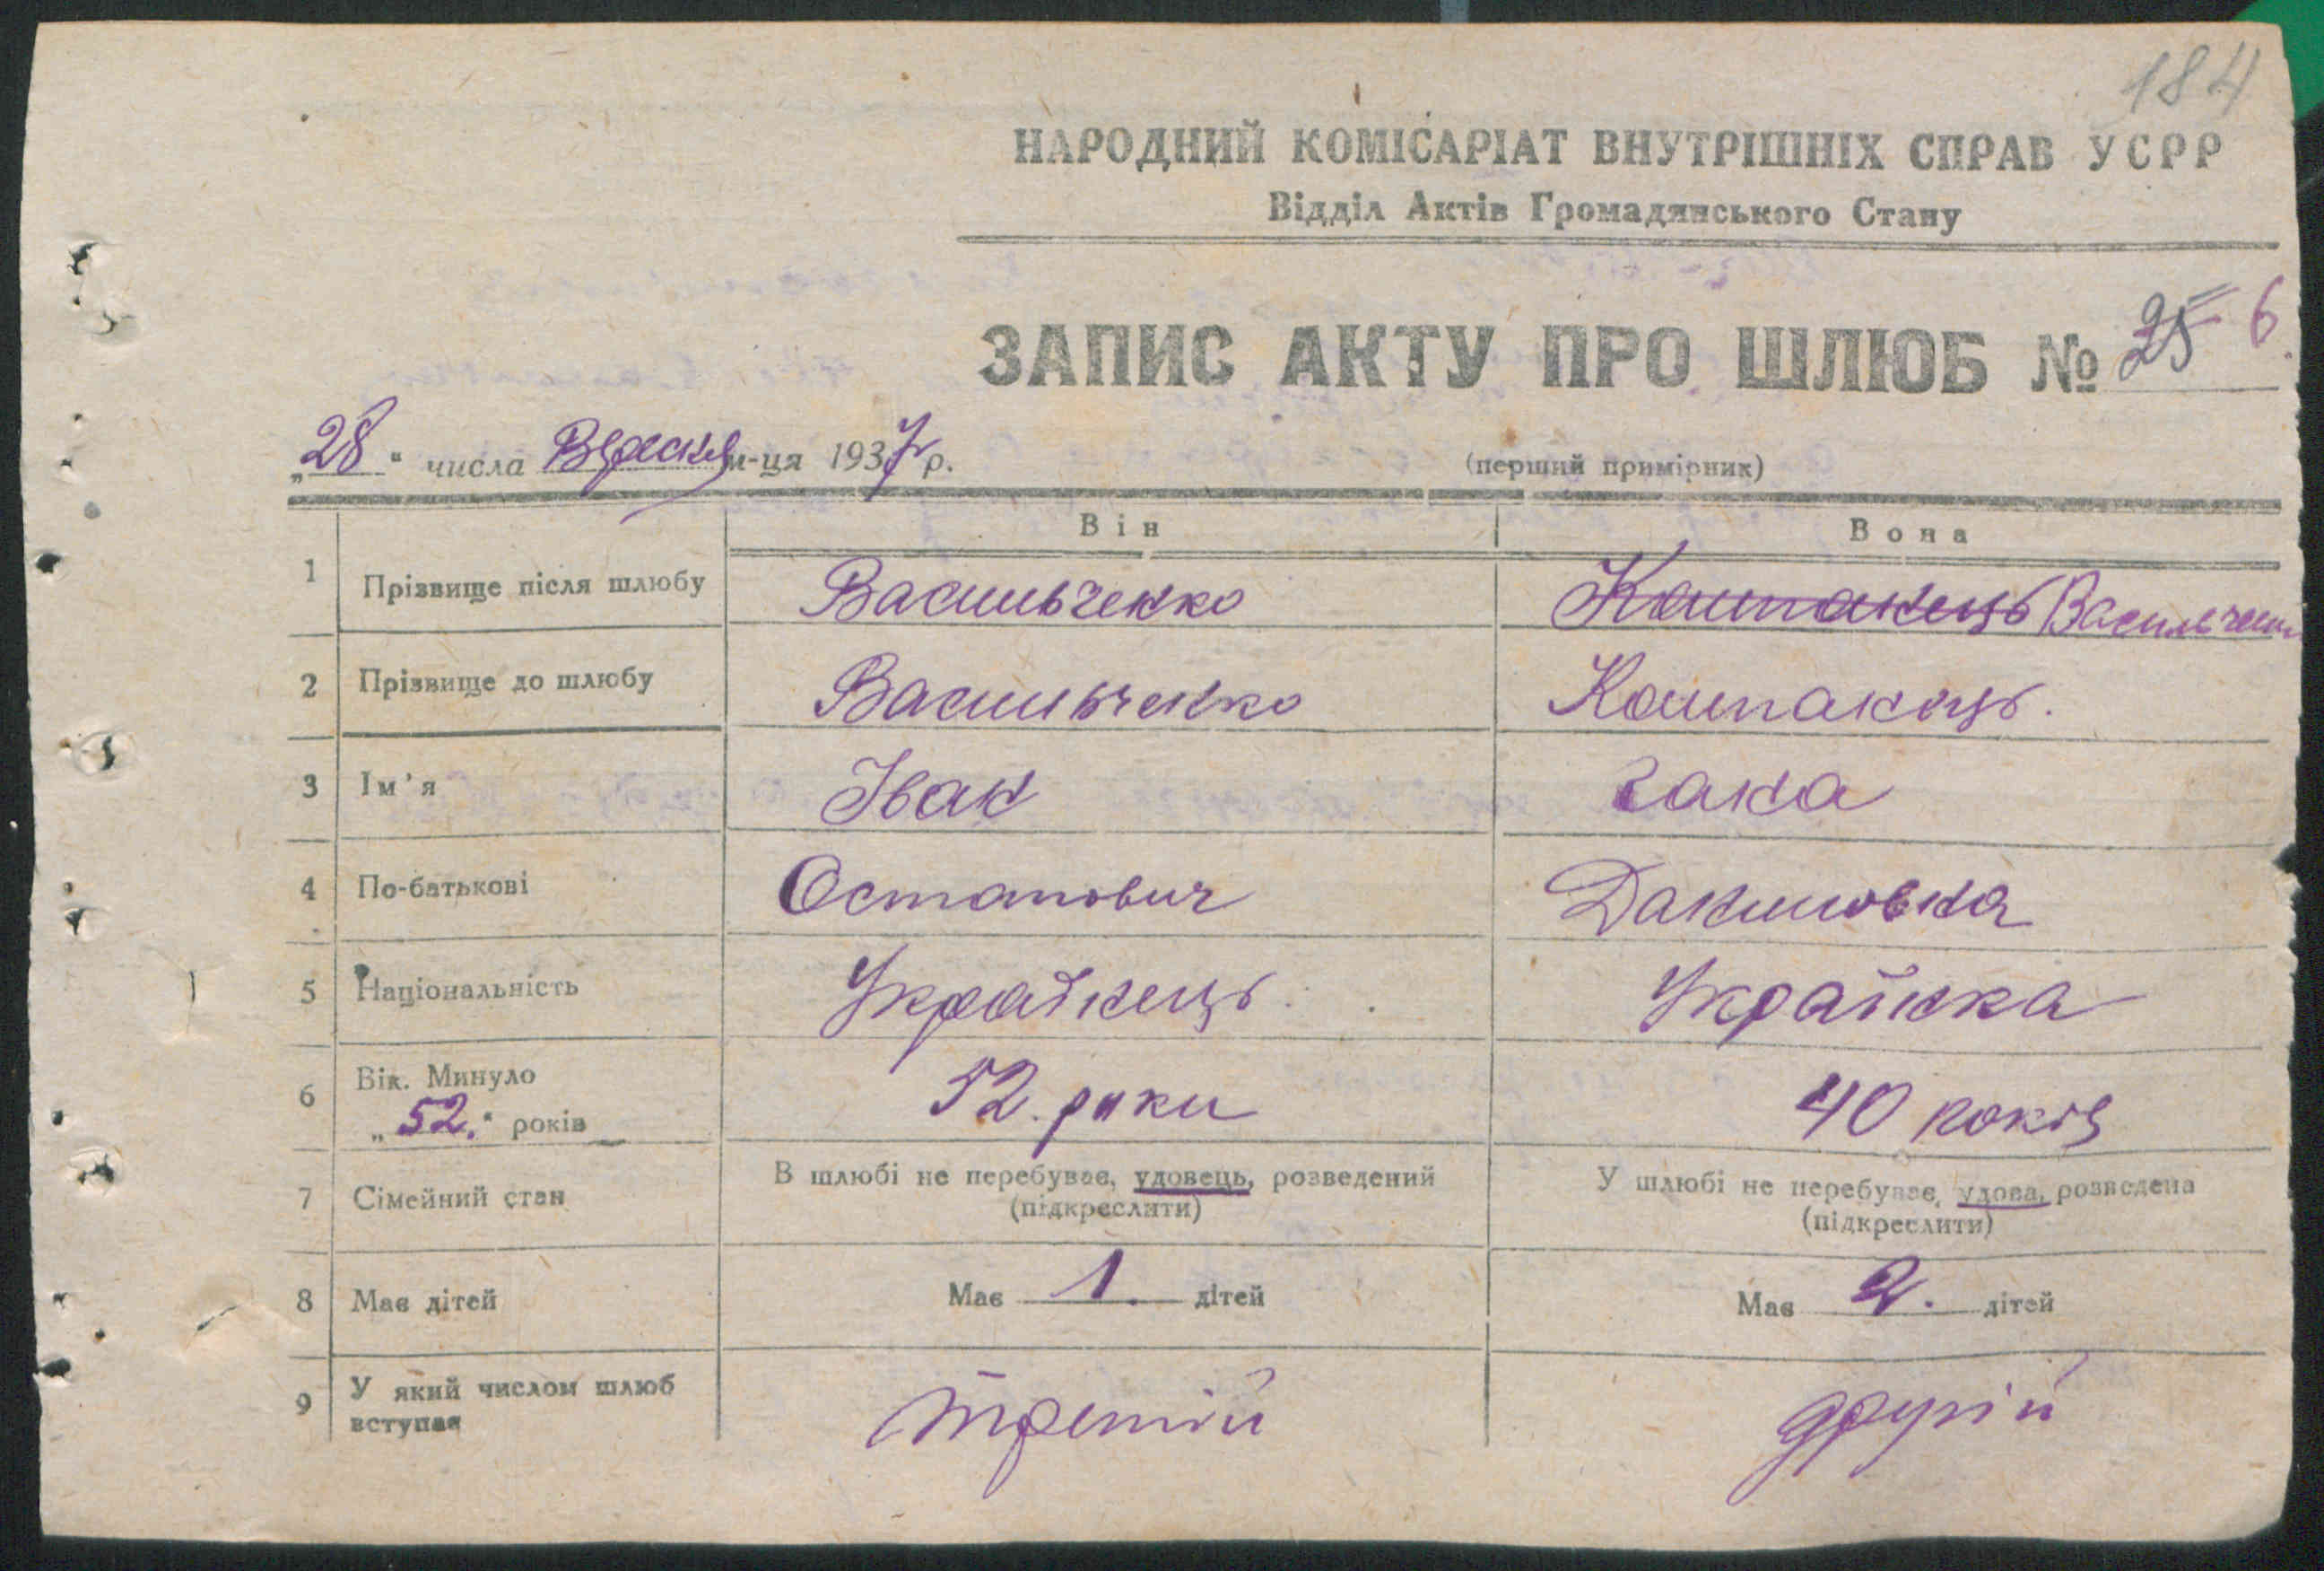 184
НАРОДНИЙ КОМІСАРІАТ ВНУТРІШНІХ СПРАВ УСРР
Відділ Актів Громадянського Стану
ЗАПИС АКТУ ПРО ШЛЮБ № 25 6
„28“ числа Вересня м-ця 1937 р.
(перший примірник)
Він Вона
1 Прізвище після шлюбу Васильченко Каштанець Васильченко
2 Прізвище до шлюбу Васильченко Каштанець.
3 Ім’я Іван Гана
4 По-батькові Остапович Даниловна
5 Національність Українець Українка
6 Вік. Минуло „52.“ років 52. роки 40 років
7 Сімейний стан В шлюбі не перебуває, удовець, розведений (підкреслити) У шлюбі не перебуває, удова, розведена (підкреслити)
8 Має дітей Має 1. дітей Має 2. дітей
9 У який числом шлюб вступає третій другій